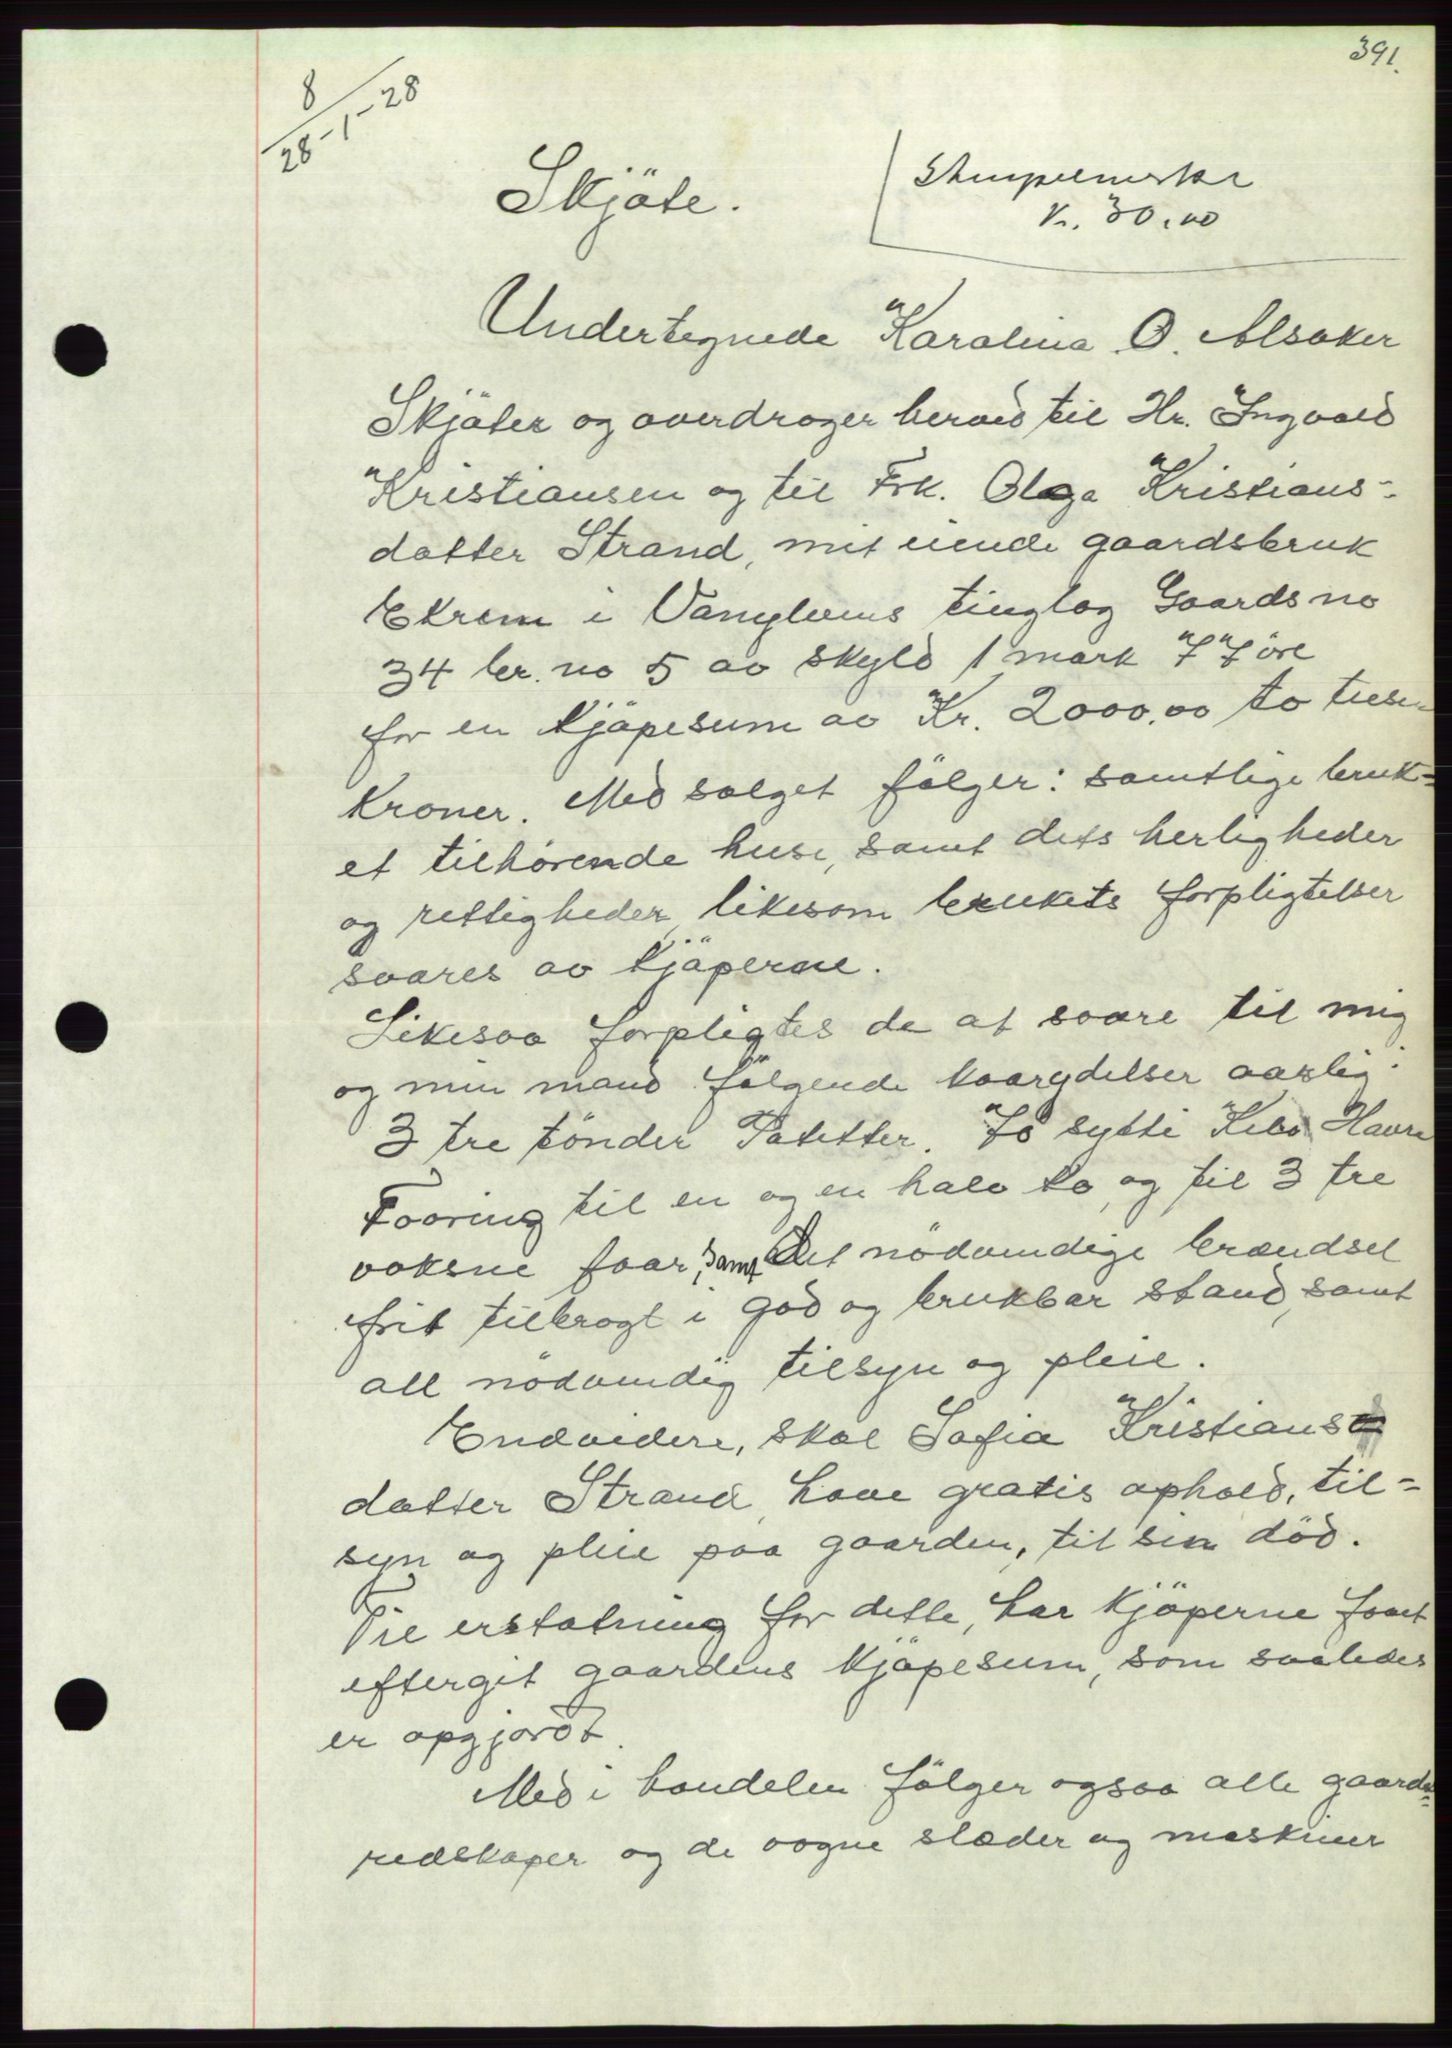 391.
8
28-1-28
Skjöte.
Stempelmerke
Kr. 30,00
Undertegnede Karolina O. Alsaker
Skjöter og overdrager herved til Hr. Ingvald
Kristiansen og til Frk. Olga Kristians-
datter Strand, mit eiende gaardsbruk
Ekrem i Vanylvens tinglag Gaardsno
34 br. no 5 av skyld 1 mark 77 öre
for en kjöpesum av Kr. 2000.00 to tusen
Kroner. Med salget fölger: samtlige bruk-
et tilhörende huse, samt dets herligheder
og rettigheder, likesom brukets forpligtelser
svares av kjöperne.
Likesaa forpligtes de at svare til mig
og min mand fölgende kaarydelser aarlig:
3 tre tönder Potetter. 70 sytti Kilo Havre
Fooring til en og en halv ko, og til 3 tre
voksne faar, samt det nödvendige brændsel
frit tilbragt i god og brukbar stand, samt
all nödvendig tilsyn og pleie.
Endvidere, skal Sofia Kristians-
datter Strand, have gratis ophold, til-
syn og pleie paa gaarden, til sin död.
Til erstatning for dette, har kjöperne faaet
eftergit gaardens kjöpesum, som saaledes
er opgjordt.
Med i handelen fölger ogsaa alle gaards-
redskaper og de vogne slæder og maskiner